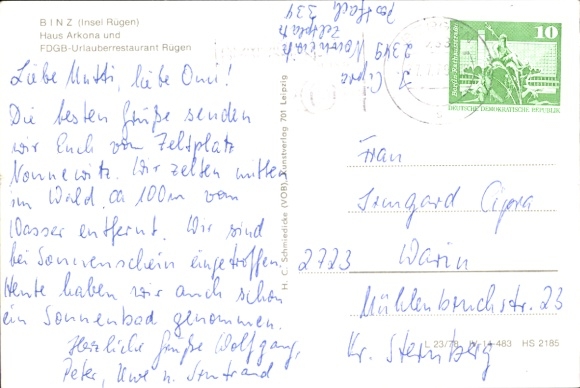 BINZ (Insel Rügen)
Haus Arkona und
FDGB-Urlauberrestaurant Rügen
Liebe Mutti, liebe Omi!
Die besten Grüße senden
wir Euch vom Zeltplatz
Nonnewitz. Wir zelten mitten
im Wald, ca 100m vom
Wasser entfernt. Wir sind
bei Sonnenschein eingetroffen.
Heute haben wir auch schon
ein Sonnenbad genommen.
Herzliche Grüße Wolfgang,
Peter, Uwe u.
J. Cipra
2349
Zeltplatz
Postfach
334
H. C. Schmiedicke (VOB) Kunstverlag 701 Leipzig
10
DEUTSCHE DEMOKRATISCHE REPUBLIK
Frau
Irmgard Cipra
2723 Warin
Mühlenbruchstr. 23
Kr. Sternberg
L 23/78 IV-14-483 HS 2185